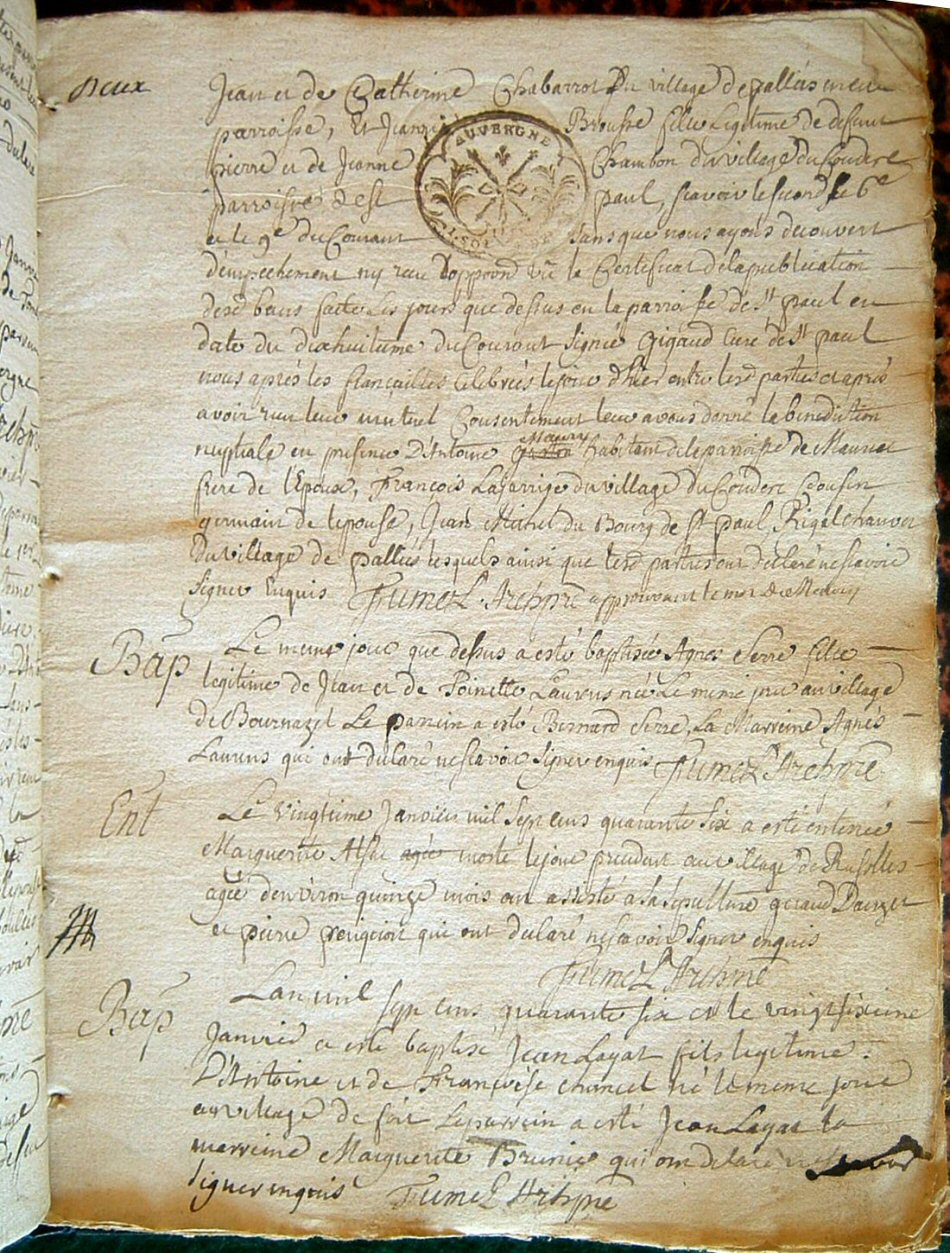 deux
Jean et de Catherine Chabarrot du village de pallies meme
parroisse, et Jeanne Brousse fille Legitime de defunt
pierre et de Jeanne Chambon du village du Couderc
parroisse de st paul, scavoir le second le 6e
et le 9e du Courant sans que nous ayons decouvert
AUVERGNE
d'empechement ny reçu d'opposition vu le Certificat de la publication
desd bans faite Les jours que dessus en la parroisse de st paul en
date du dixhuitieme du Courant signé Gigaud Curé de st paul
nous aprés les fiançailles Celebrées le jour d'hier entre lesd parties et aprés
avoir reçu leur mutuel Consentement leur avons donné la benediction
nuptiale en presence D'Antoine habitant de la parroisse de
Maury
frere de l'Epoux, François Lajarrige du village du Couderc Cousin
germain de l'epouse, Jean Michel du Bourg de st paul, Rigal chauvet
du village de pallies lesquels ainsi que lesd parties ont declaré ne scavoir
signer Enquis FumeL Archpre approuvant le mot de Maury
Bap
Le meme jour que dessus a esté baptisée Agnes Serre fille
legitime de Jean et de Toinette Laurens née Le meme jour au village
de Bournazel Le parrein a esté Bernard Serre, La Marreine Agnés
Laurens qui ont declaré ne scavoir signer enquis FumeL Archpre
Ent
Le vingtieme Janvier mil sept cens quarante six a esté enterrée
Marguerite agée morte le jour precedent au village de
agée d'environ quinze mois ont assisté a sa sepulture geraud
et pierre qui ont declaré ne scavoir signer enquis
FumeL Archpre
Bap
L'an mil sept cens quarante six et le vingt sixieme
Janvier a esté baptisé Jean Layat fils legitime
D'Antoine et de Françoise chancel né le meme jour
au village de Le parrein a esté Jean Layat la
marreine Marguerite qui ont declaré ne scavoir
signer enquis FumeL Archpre